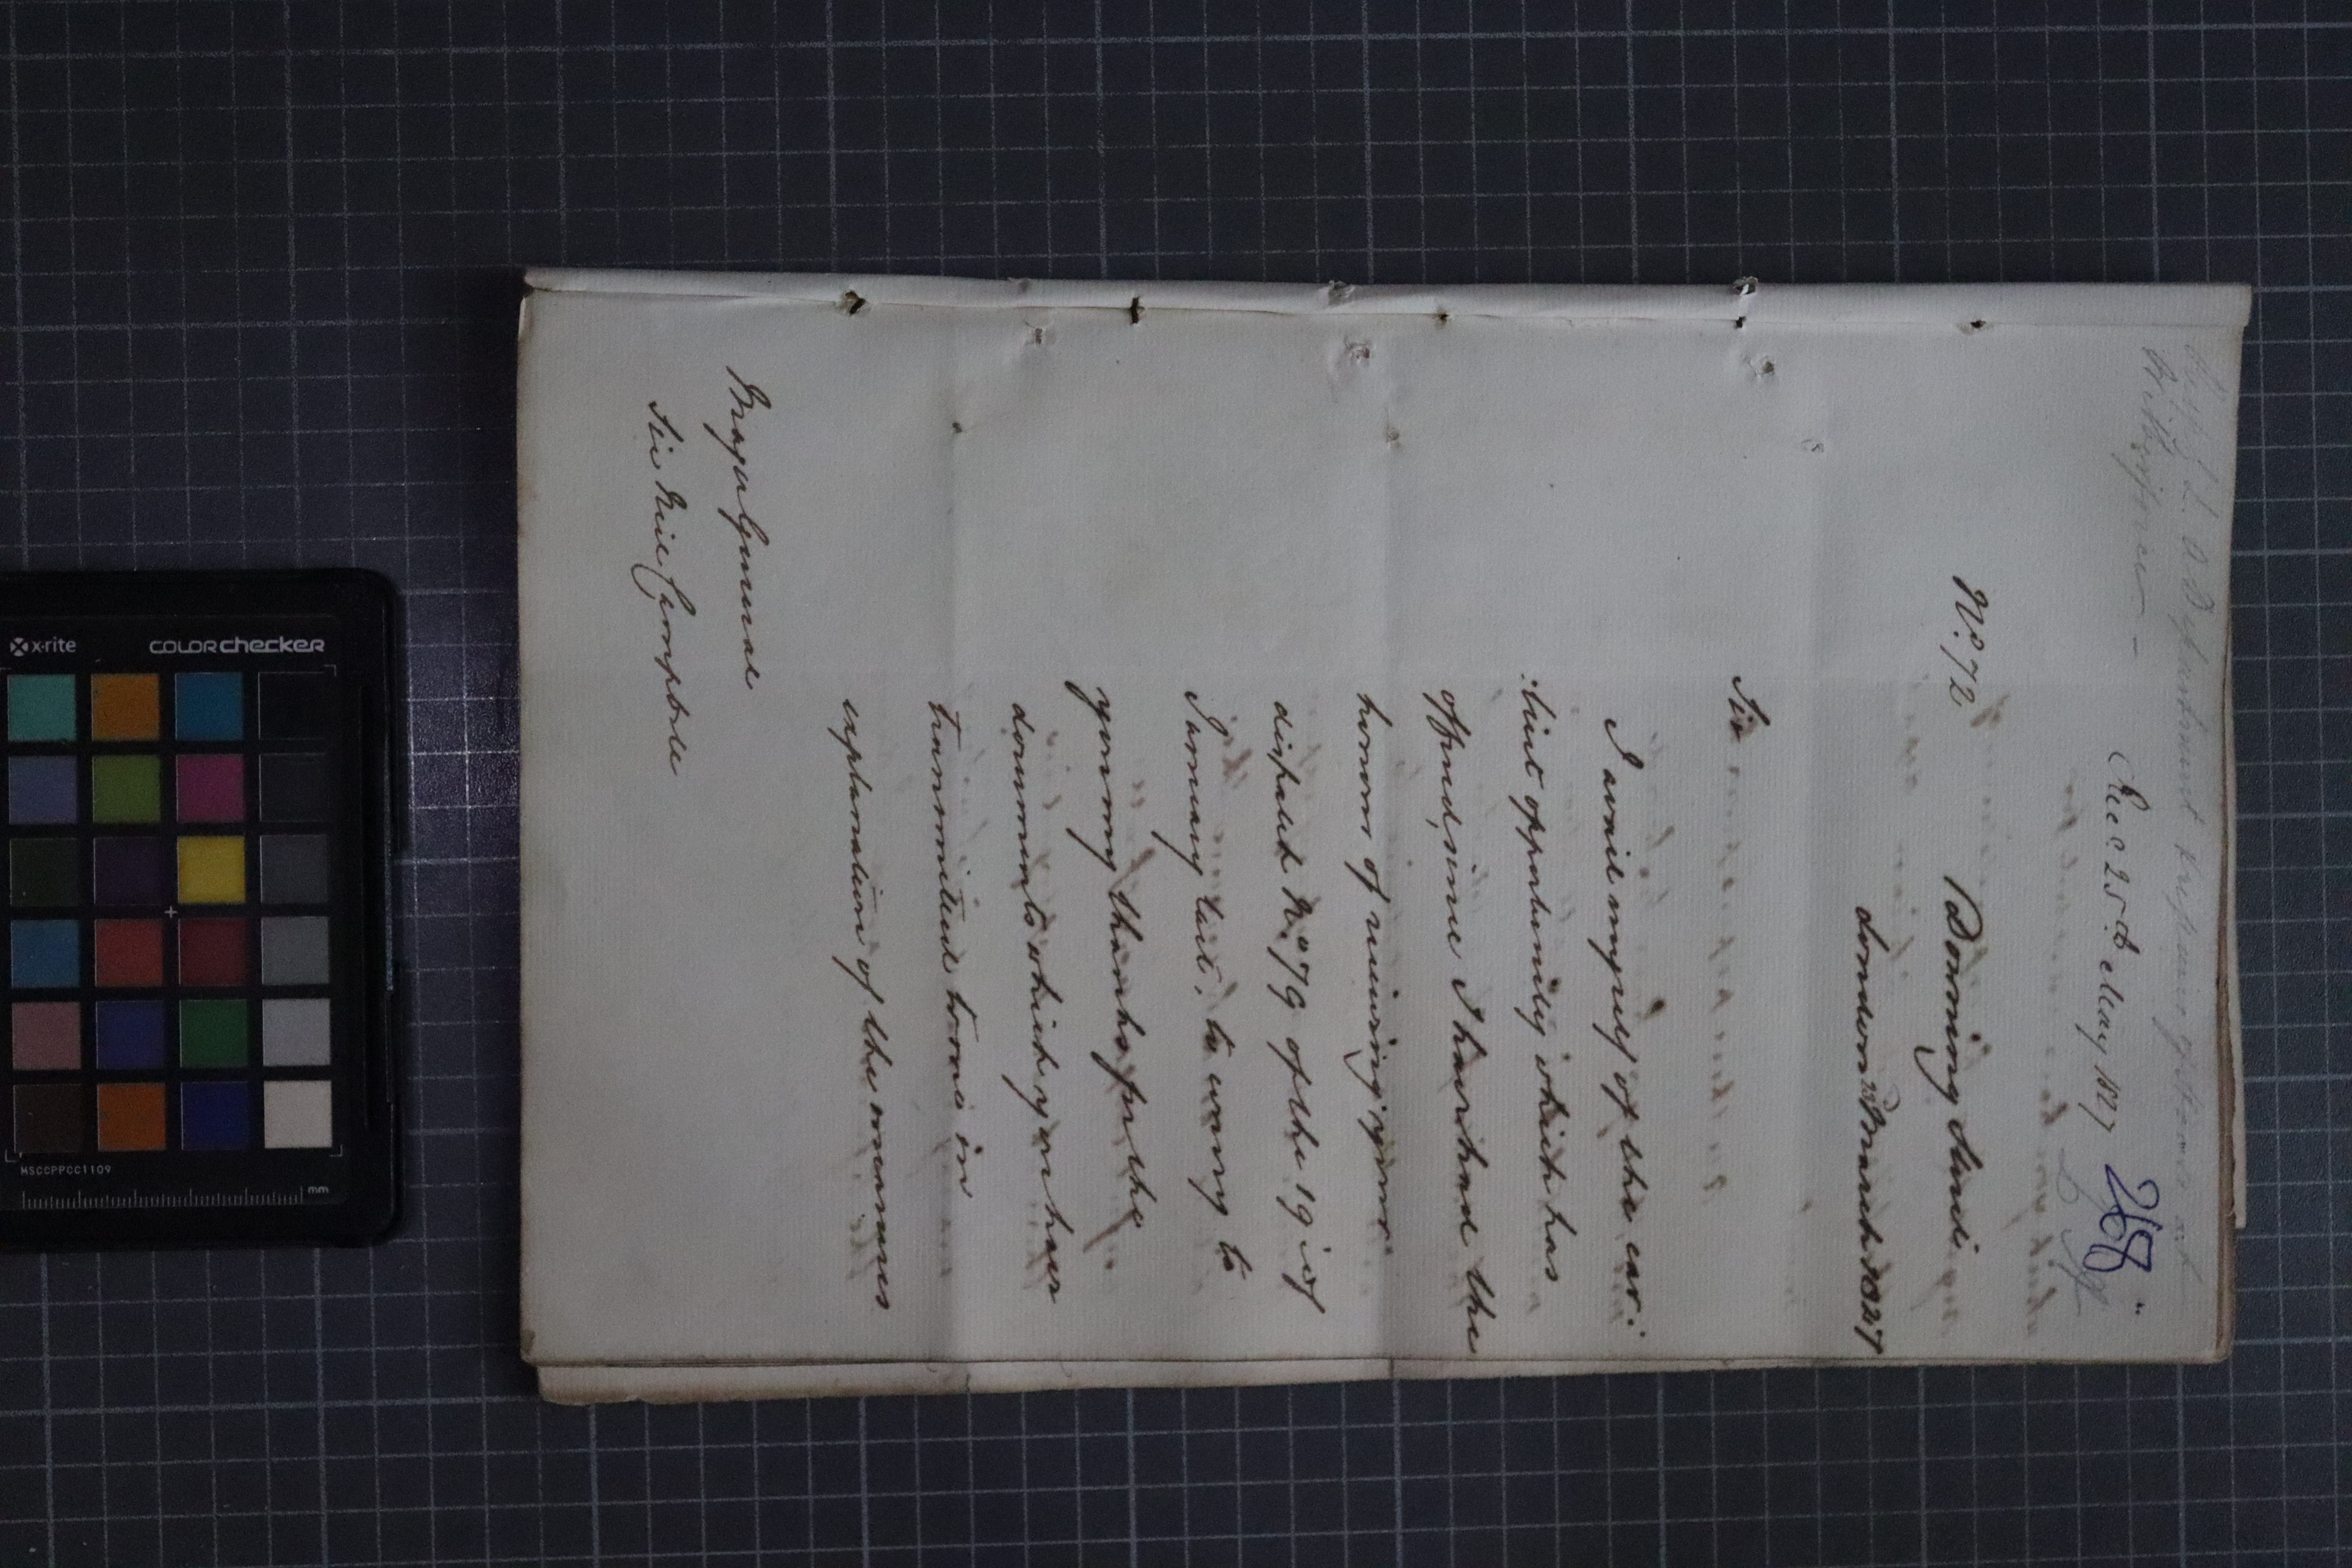 Recd 25th May 1827
268
No. 72
Downing Street
London 22 March 1827
Sir
I avail myself of the ear:
:liest opportunity which has
offered, since I have had the
honor of receiving your
dispatch No. 79 of the 19 of
January last, to convey to
you my thanks for the
documents which you have
transmitted home in
explanation of the measures
Major General
Sir Neil Campbell
x-rite
colorchecker
MSCCPPCC1109
mm